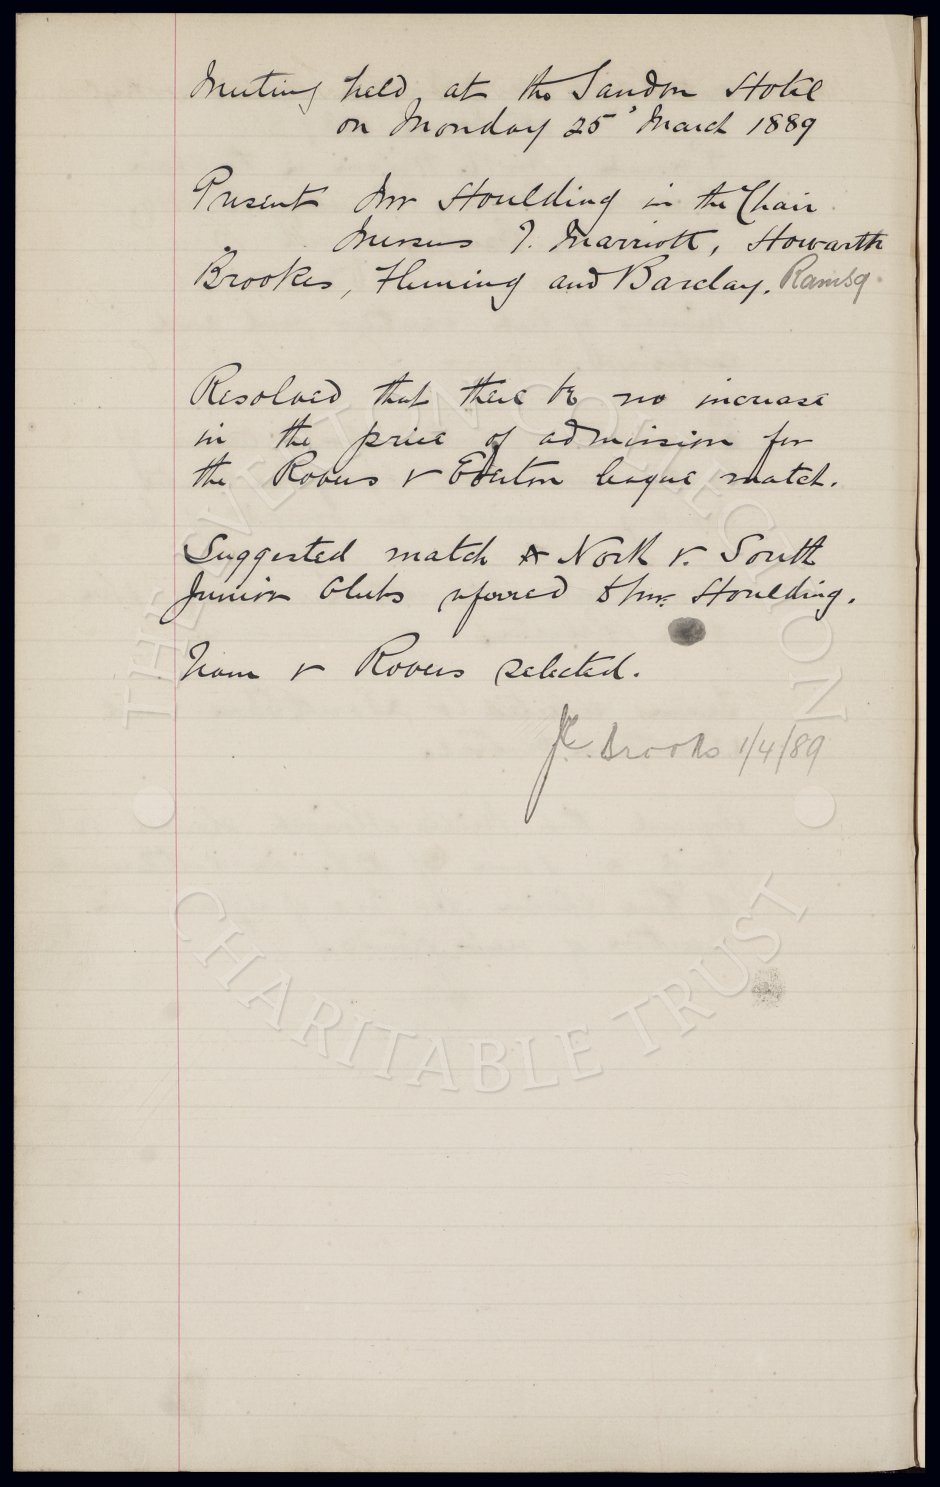 Meeting held at the Sandon Hotel
on Monday 25' March 1889
Present Mr Houlding in the Chair
Messrs J. Marriott, Howarth
Brookes, Fleming and Barclay. Ramsay.
Resolved that there be no increase
in the price of admission for
the Rovers v Everton league match.
Suggested match North v. South
Junior Clubs referred to Mr. Houlding.
Team v Rovers selected.
J.C. Brooks 1/4/89
THE EVERTON COLLECTION
CHARITABLE TRUST